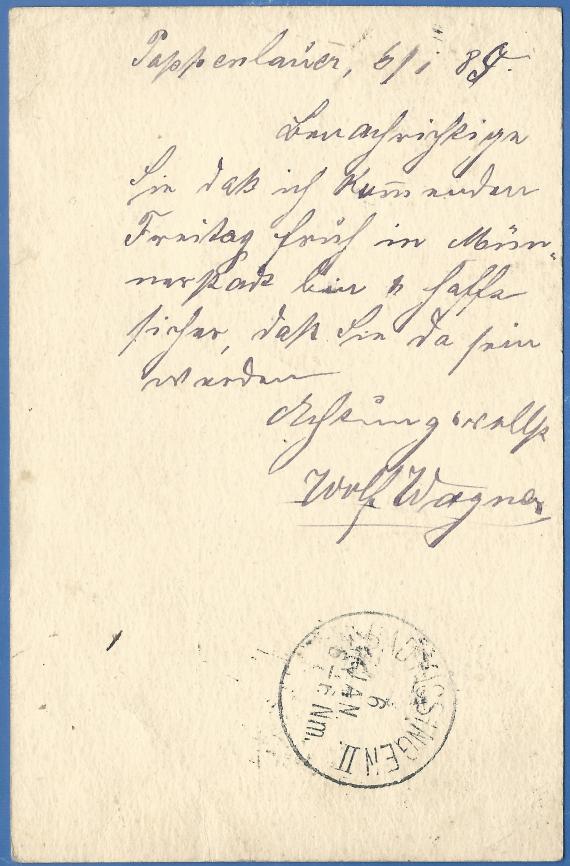 Poppenlauer, 6/1 89.
Benachrichtige
Sie daß ich kommenden
Freitag früh in Mün-
nerstadt bin & hoffe
sicher, daß Sie da sein
werden
Achtungsvollst
Wolf Wagner
BAD KISSINGEN II.
6
JAN
Nm.